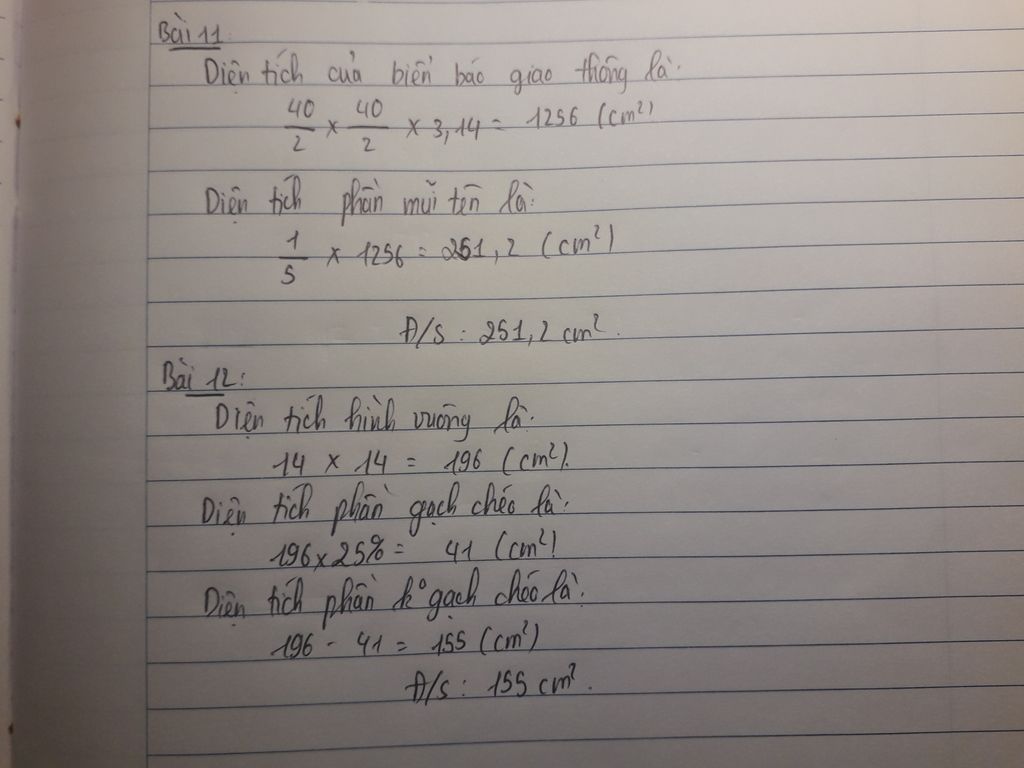 Bài 11:
Diện tích của biển báo giao thông là:
40/2 × 40/2 × 3,14 = 1256 (cm²)
Diện tích phần mũi tên là:
1/5 × 1256 = 251,2 (cm²)
Đ/S: 251,2 cm².
Bài 12:
Diện tích hình vuông là:
14 × 14 = 196 (cm²).
Diện tích phần gạch chéo là:
196 × 25% = 41 (cm²)
Diện tích phần k° gạch chéo là:
196 - 41 = 155 (cm²)
Đ/S: 155 cm².